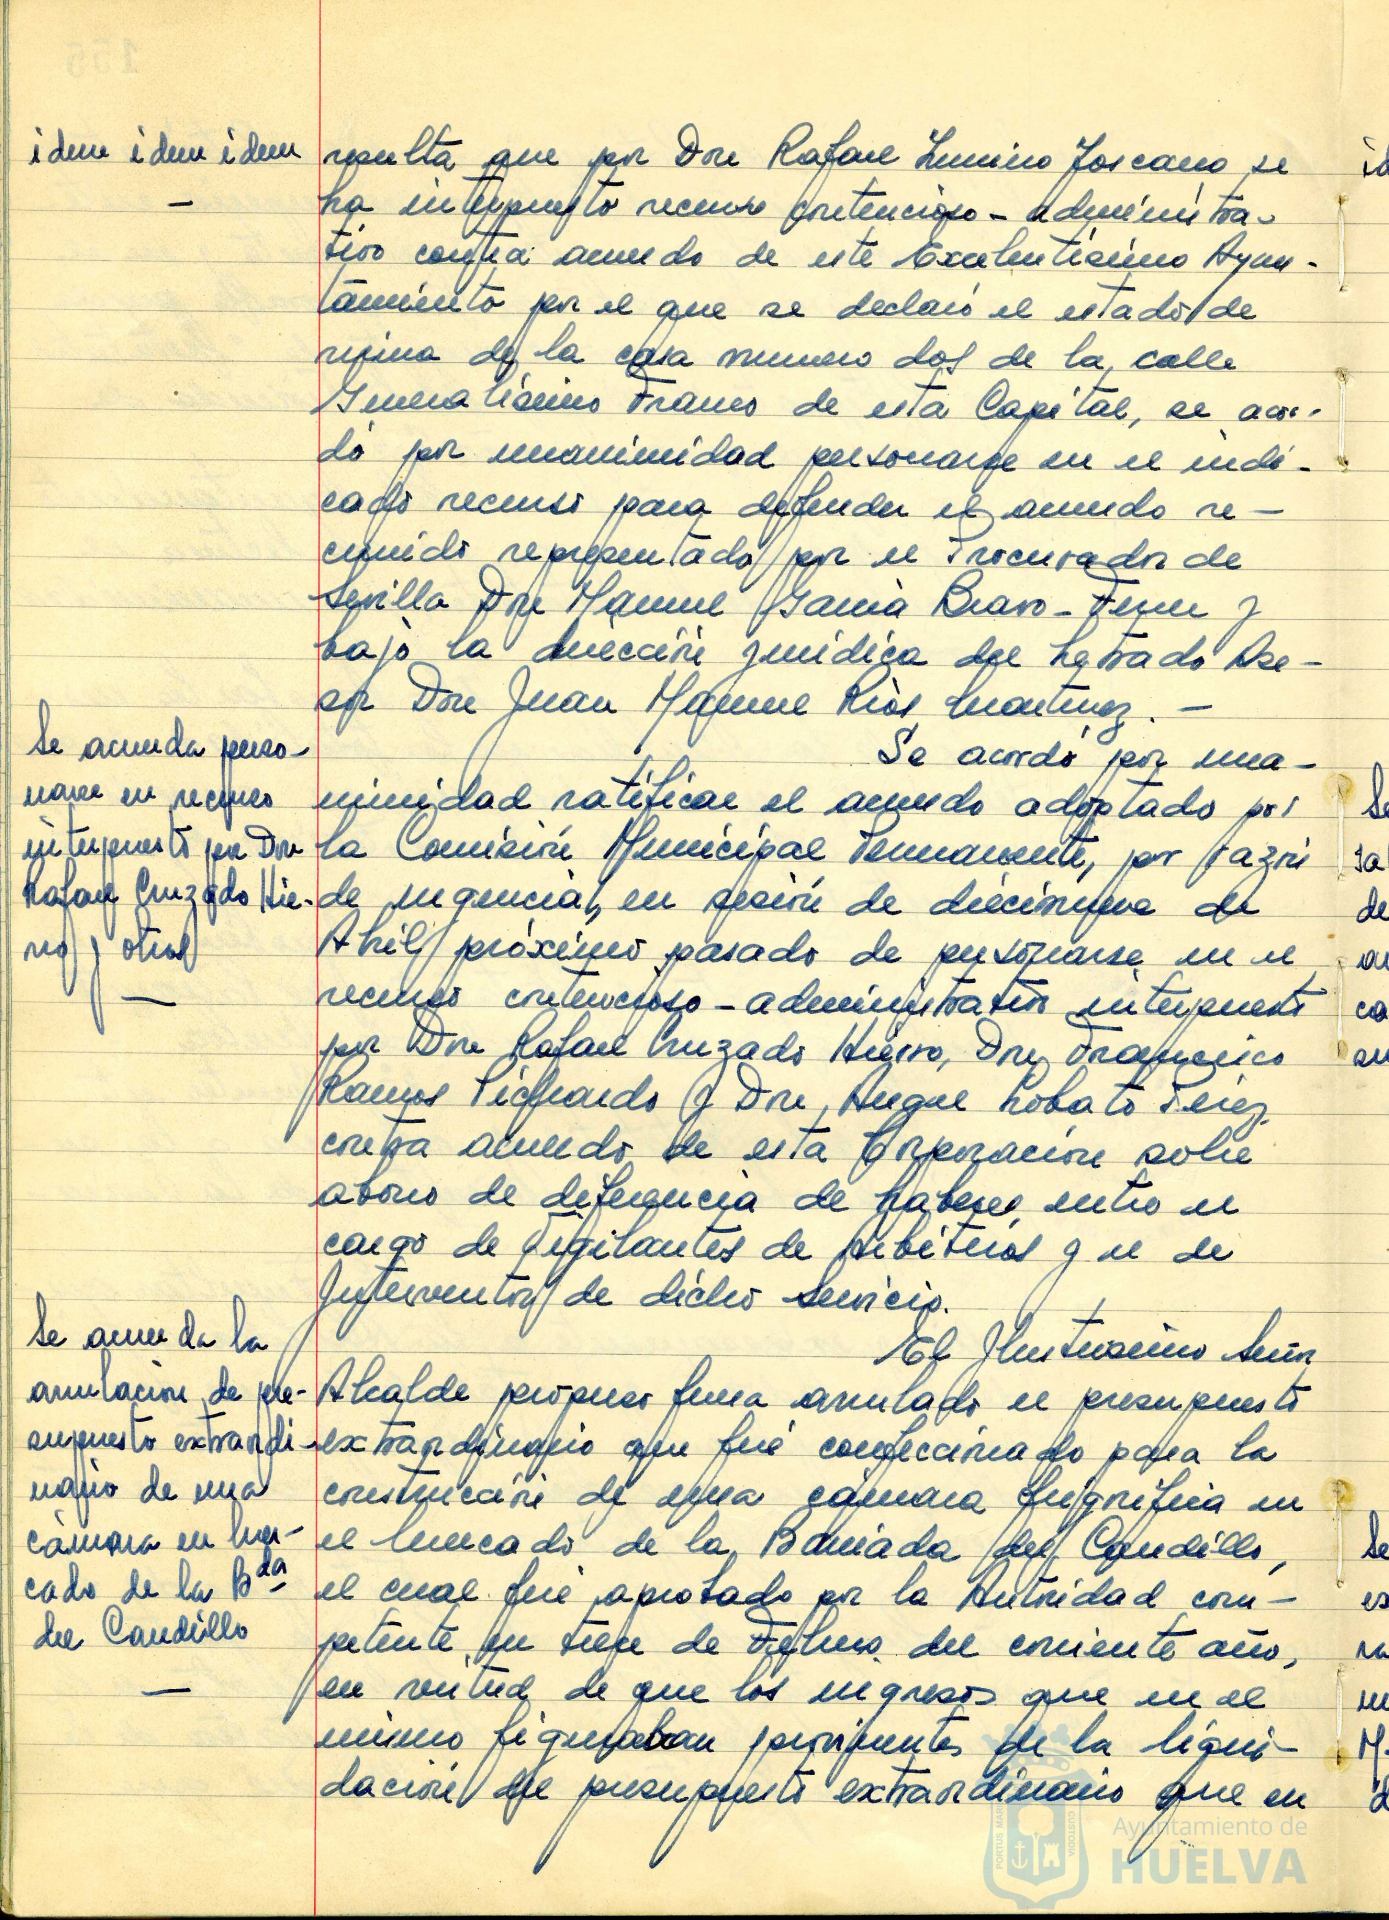 idem idem idem
—
resulta que por Don Rafael Toscano se
ha interpuesto recurso contencioso-administra-
tivo contra acuerdo de este Excelentísimo Ayun-
tamiento por el que se declaró el estado de
ruina de la casa numero dos de la calle
Generalísimo Franco de esta Capital, se acor-
dó por unanimidad personarse en el indi-
cado recurso para defender el acuerdo re-
currido representado por el Procurador de
Sevilla Don Manuel García Bravo-Ferrer y
bajo la dirección jurídica del Letrado Ase-
sor Don Juan Manuel Ríos Martinez. —
Se acuerda perso-
narse en recurso
interpuesto por Don
Rafael Cruzado Hie-
rro y otros
—
Se acordó por una-
nimidad ratificar el acuerdo adoptado por
la Comisión Municipal Permanente, por razón
de urgencia, en sesión de diecinueve de
Abril próximo pasado de personarse en el
recurso contencioso-administrativo interpuesto
por Don Rafael Cruzado Hierro, Don Francisco
Ramos Pichardo y Don Angel Lobato Perez
contra acuerdo de esta Corporación sobre
abono de diferencia de haberes entre el
cargo de Vigilantes de Arbitrios y el de
Interventor de dicho servicio.
Se acuerda la
anulación de pre-
supuesto extraordi-
nario de una
cámara en Mer-
cado de la Bda
del Caudillo
—
El Ilustrísimo Señor
Alcalde propuso fuera anulado el presupuesto
extraordinario que fué confeccionado para la
construcción de una cámara frigorífica en
el Mercado de la Barriada del Caudillo,
el cual fué aprobado por la Autoridad com-
petente en trece de Febrero del corriente año,
en virtud de que los ingresos que en el
mismo figuraban provinentes de la liqui-
dación del presupuesto extraordinario que en
PORTUS MARIS CUSTODIA
Ayuntamiento de
HUELVA